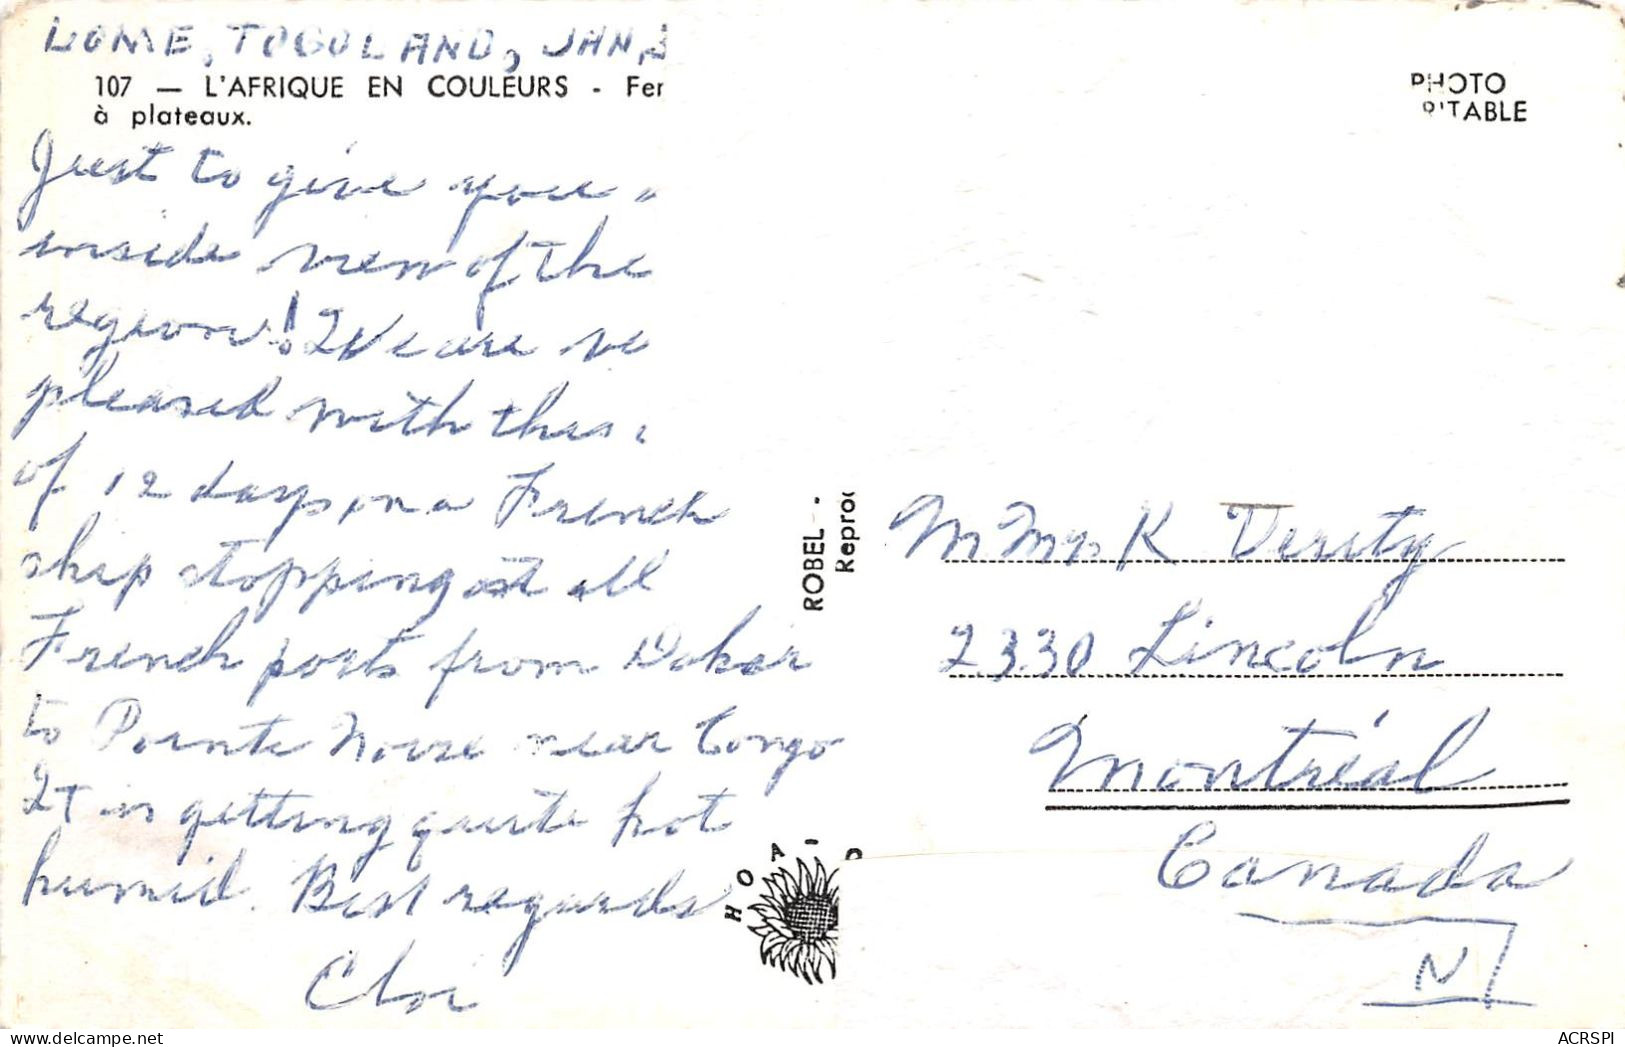 LOME, TOGOLAND, JAN,
107 — L'AFRIQUE EN COULEURS - Fer
à plateaux.
Just to give you
inside view of the
region! We are ve
pleased with this
of 12 days on a French
ship stopping at all
French ports from Dakar
to Pointe Noire near Congo
It is getting quite hot
humid. Best regards
PHOTO
ITABLE
ROBEL -
Reproc
HOA
M Mme K Verity
2330 Lincoln
Montréal
Canada
N
ACRSPI